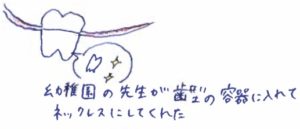 幼稚園の先生が歯型の容器に入れて
ネックレスにしてくれた